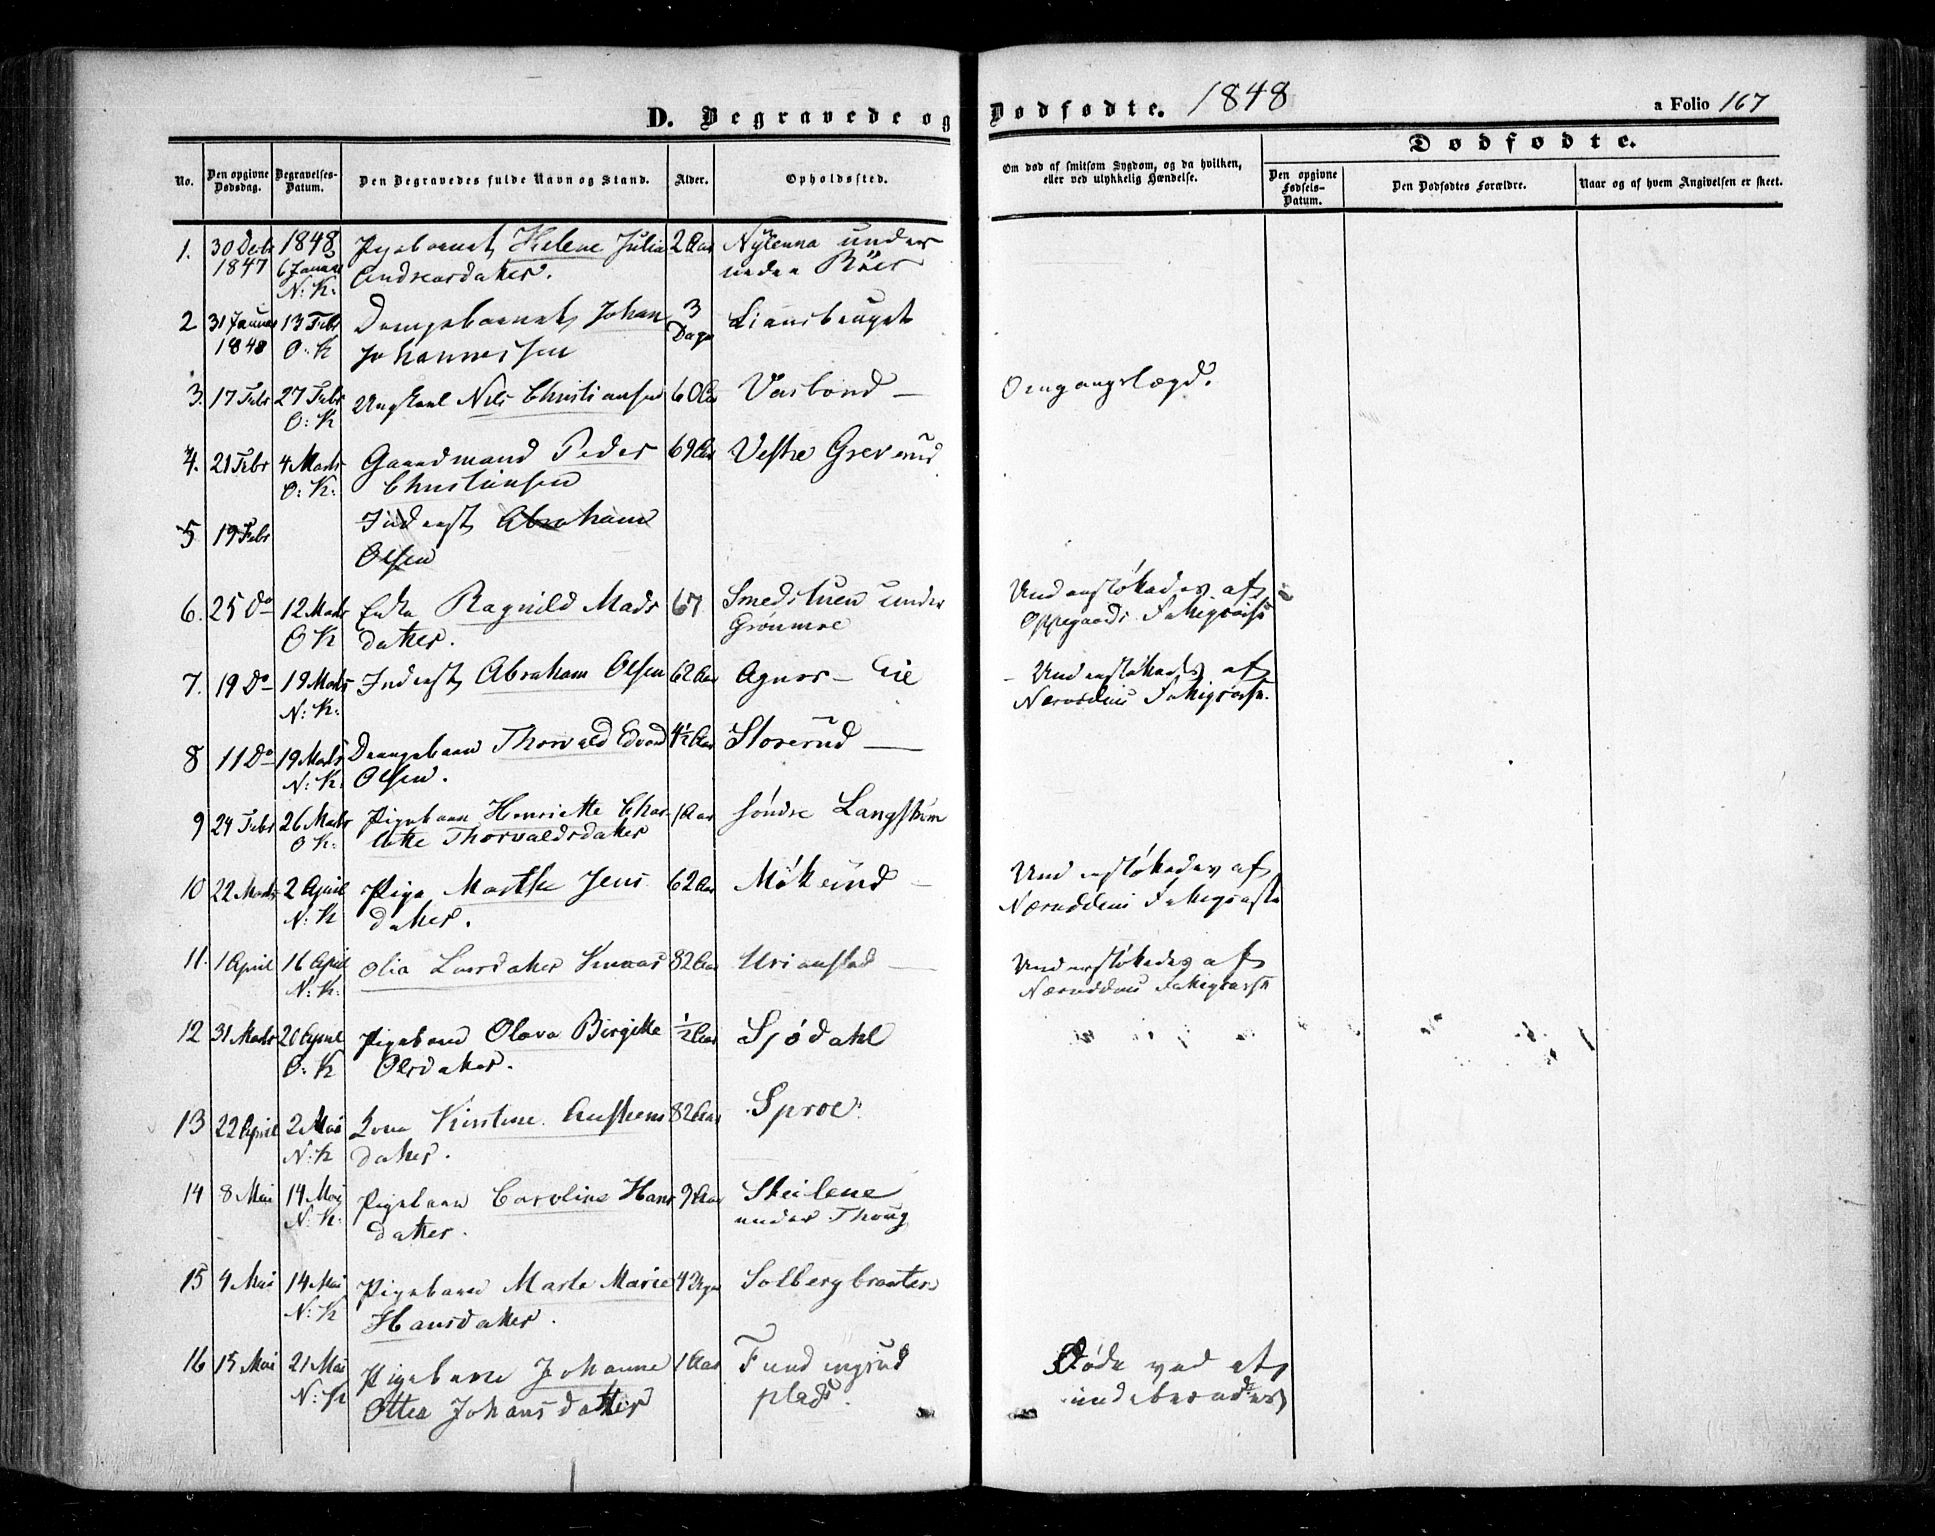 D. Begravede og Dødfødte. 1848
a Folio 167
No.
Den opgivne Dødsdag.
Begravelses-Datum.
Den Begravedes fulde Navn og Stand.
Alder.
Opholdssted.
Om død af smitsom Sygdom, og da hvilken, eller ved ulykkelig Hændelse.
Dødfødte.
Den opgivne Fødsels-Datum.
Den Dødfødtes Forældre.
Naar og af hvem Angivelsen er skeet.
1. 30 Decbr 1848 Pigebarnet Helene Julia 2 Aar Nÿlenna under
1847 6 Januar Andreasdatter. nedre Röer
N: K.
2 31 Januar 13 Febr Drengebarnet Johan 3 Liansbruget
1848 O: K Johannessen Dage
3. 17 Febr 27 Febr Ungkarl Nils Christiansen 60 Aar Vasbond — Omgangslægd.
O: K
4. 21 Febr 4 Marts Gaardmand Peder 69 Aar Vestre Greverud
O: K. Christiansen
5 19 Febr Inderst Abraham
Olsen
6. 25 Do 12 Marts Enke Ragnild Mads 67 Smedstuen under Understøttedes af
O K datter. Grønmoe Oppegaards Fattigcasse
7. 19 Do 19 Marts Inderst Abraham Olsen 62 Aar Agnor – Eie – Understøttedes af
N: K. Næsoddens Fattigcasse.
8 11 Do 19 Marts Drengebarn Thorvald Edvard 4½ Aar Storerud —
N: K. Olsen.
9 24 Febr 26 Marts Pigebarn Henriette Char- 1 Aar søndre Langstrøm
O K. lotte Thorvaldsdatter
10 22 Marts 2 April Pige Marthe Jens 62 Aar Møkerud – Understøttedes af
N: K datter. Næsoddens Fattigcasse
11. 1 April 16 April Olia Larsdatter 82 Aar Urianstad — Understøttedes af
N: K. Næsoddens Fattigcasse
12 31 Marts 20 April Pigebarn Olava Birgitte ½ Aar Sjødahl
O. K Olsdatter.
13 22 April 2 Mai Kone Kirstine 82 Aar Sproe.
N: K datter.
14 8 Mai 14 Mai Pigebarn Caroline Hans 9 Aar Steilene
N: K. datter. under Thoug
15 4 Mai 14 Mai Pigebarn Marte Marie 4 Uger Solbergbraaten
N: K Hansdatter.
16 15 Mai 21 Mai Pigebarn Johanne 1 Aar Fundingrud Døde ved at
N: K Ottea Johansdatter plads.